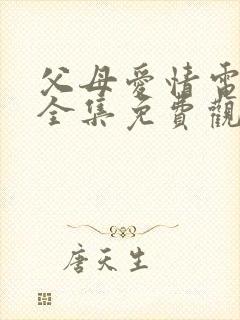 父母愛情電
全集免費觀
唐天生